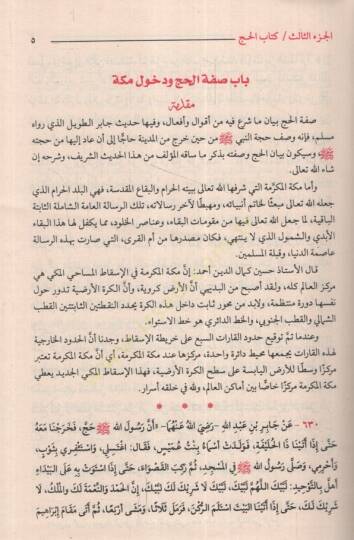 الجزء الثالث / كتاب الحج
٥
باب صفة الحج ودخول مكة
مقدمة
صفة الحج بيان ما شرع فيه من أقوال وأفعال، وفيها حديث جابر الطويل الذي رواه
مسلم، فإنه وصف حجة النبي ﷺ من حين خرج من المدينة حاجًّا إلى أن عاد إليها من حجته
ﷺ، وسيكون بيان الحج وصفته بذكر ما ساقه المؤلف من هذا الحديث الشريف، وشرحه إن
شاء الله تعالى.
وأما مكة المكرَّمة التي شرفها الله تعالى ببيته الحرام والبقاع المقدسة، فهي البلد الحرام الذي
جعله الله تعالى مبعثًا لخاتم أنبيائه، ومهبطًا لآخر رسالاته، تلك الرسالة العامة الشاملة الثابتة
الباقية، لما جعل الله تعالى فيها من مقومات البقاء، وعناصر الخلود، مما يكفل لها هذا البقاء
الأبدي والشمول الذي لا ينتهي، فكان مصدرها من أم القرى، التي صارت بهذه الرسالة
عاصمة الدنيا، وقبلة المسلمين.
قال الأستاذ حسين كمال الدين أحمد: إنَّ مكة المكرمة في الإسقاط المساحي المكي هي
مركز العالم كله، ولقد أصبح من البديهي أنَّ الأرض كروية، وأنَّ الكرة الأرضية تدور حول
نفسها دورة منتظمة، ولابد من محور ثابت داخل هذه الكرة يحدد النقطتين الثابتتين القطب
الشمالي والقطب الجنوبي، والخط الدائري هو خط الاستواء.
وعندما تمَّ توقيع حدود القارات السبع على خريطة الإسقاط، وجدنا أنَّ الحدود الخارجية
لهذه القارات يجمعها محيط دائرة واحدة، مركزها عند مكة المكرمة، أي أنَّ مكة المكرمة تعتبر
مركزًا وسطًا للأرض اليابسة على سطح الكرة الأرضية، فهذا الإسقاط المكي الجديد يعطي
مكة المكرمة مركزًا خاصًّا بين أماكن العالم، ولله في خلقه أسرار.
٦٣٠- عَنْ جَابِرِ بْنِ عَبْدِ اللهِ -رَضِيَ اللهُ عَنْهُمَا- «أَنَّ رَسُولَ اللهِ ﷺ حَجَّ، فَخَرَجْنَا مَعَهُ
حَتَّى إِذَا أَتَيْنَا ذَا الْحُلَيْفَةِ، فَوَلَدَتْ أَسْمَاءُ بِنْتُ عُمَيْسٍ، فَقَالَ: اغْتَسِلِي، وَاسْتَثْفِرِي بِثَوْبٍ،
وَأَحْرِمِي، وَصَلَّى رَسُولُ اللهِ ﷺ فِي الْمَسْجِدِ، ثُمَّ رَكِبَ الْقَصْوَاءَ، حَتَّى إِذَا اسْتَوَتْ بِهِ عَلَى الْبَيْدَاءِ
أَهَلَّ بِالتَّوْحِيدِ: لَبَّيْكَ اللَّهُمَّ لَبَّيْكَ، لَبَّيْكَ لَا شَرِيكَ لَكَ لَبَّيْكَ، إِنَّ الْحَمْدَ وَالنِّعْمَةَ لَكَ وَالْمُلْكَ، لَا
شَرِيكَ لَكَ، حَتَّى إِذَا أَتَيْنَا الْبَيْتَ اسْتَلَمَ الرُّكْنَ، فَرَمَلَ ثَلَاثًا، وَمَشَى أَرْبَعًا، ثُمَّ أَتَى مَقَامَ إِبْرَاهِيمَ